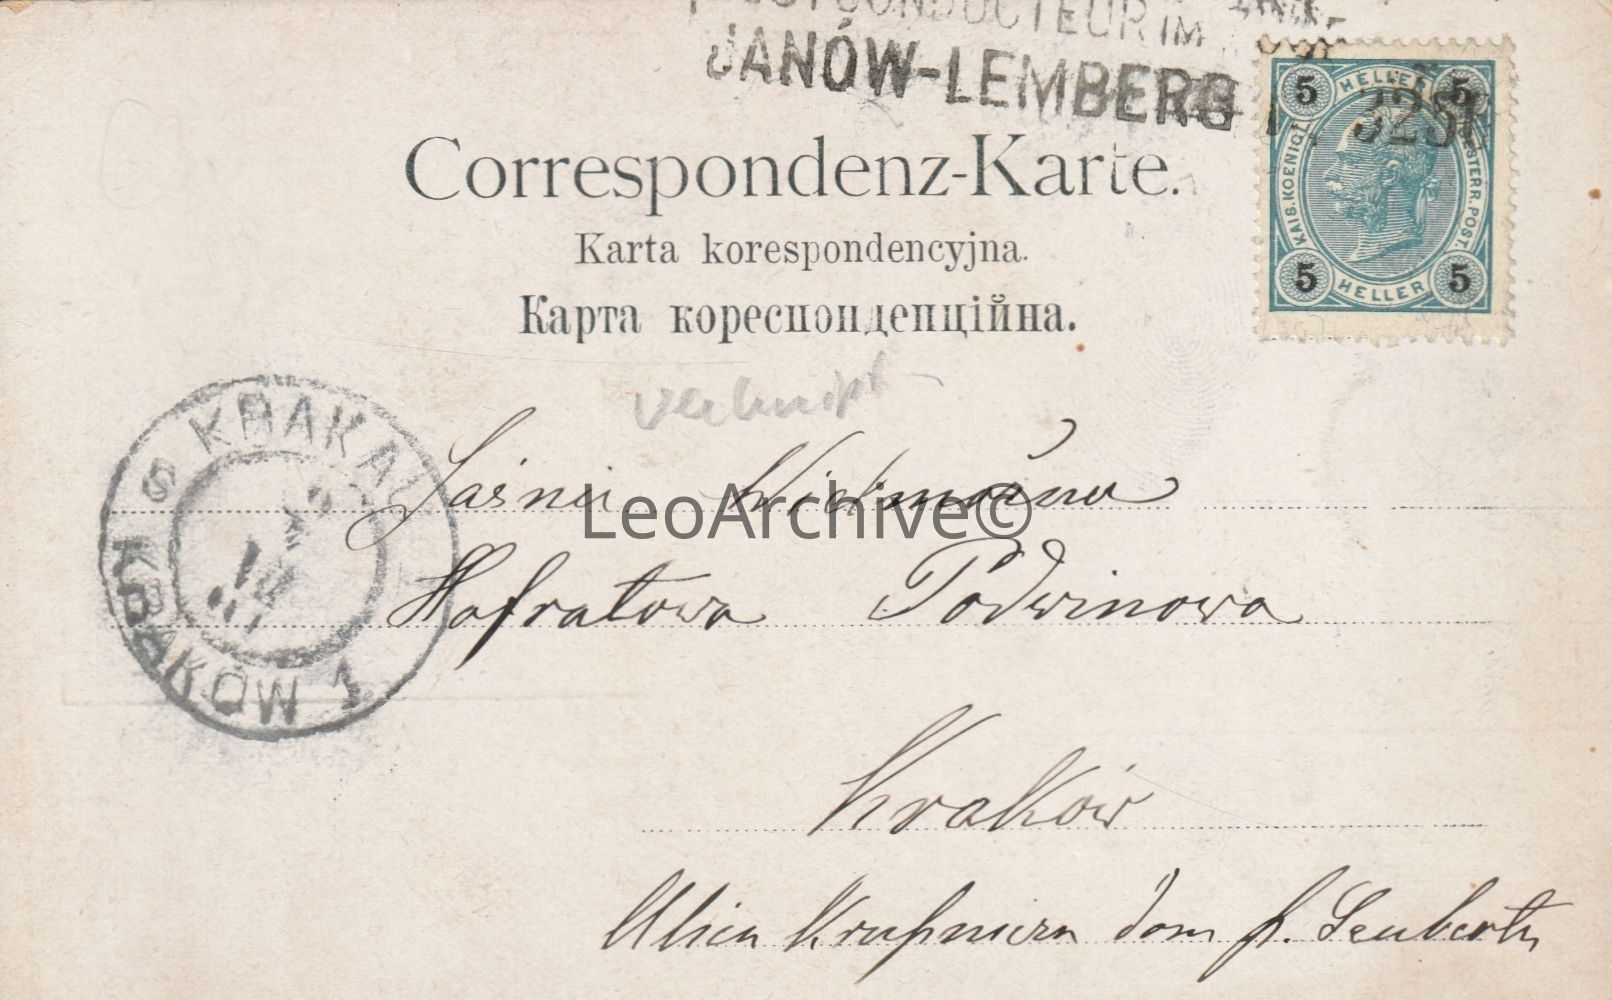 POSTCONDUCTEUR IM
JANÓW-LEMBERG
325
5 HELLER 5
KAIS.KOENIGL. OESTERR.POST.
5 HELLER 5
Correspondenz-Karte.
Karta korespondencyjna.
Карта кореспонденційна.
KRAKAU
KRAKÓW 1
LeoArchive©
Hofratowa Podwinowa
Kraków
Ulica Krupnicza dom p.